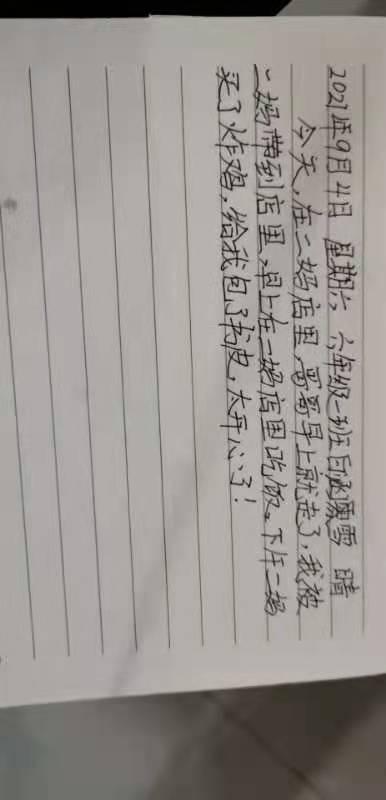 2021年9月4日 星期六 六年级一班 白涵雪 晴
今天,在二妈店里,哥哥早上就走了,我被
二妈带到店里,早上在二妈店里吃饭。下午二妈
买了炸鸡,给我包了书皮,太开心了!